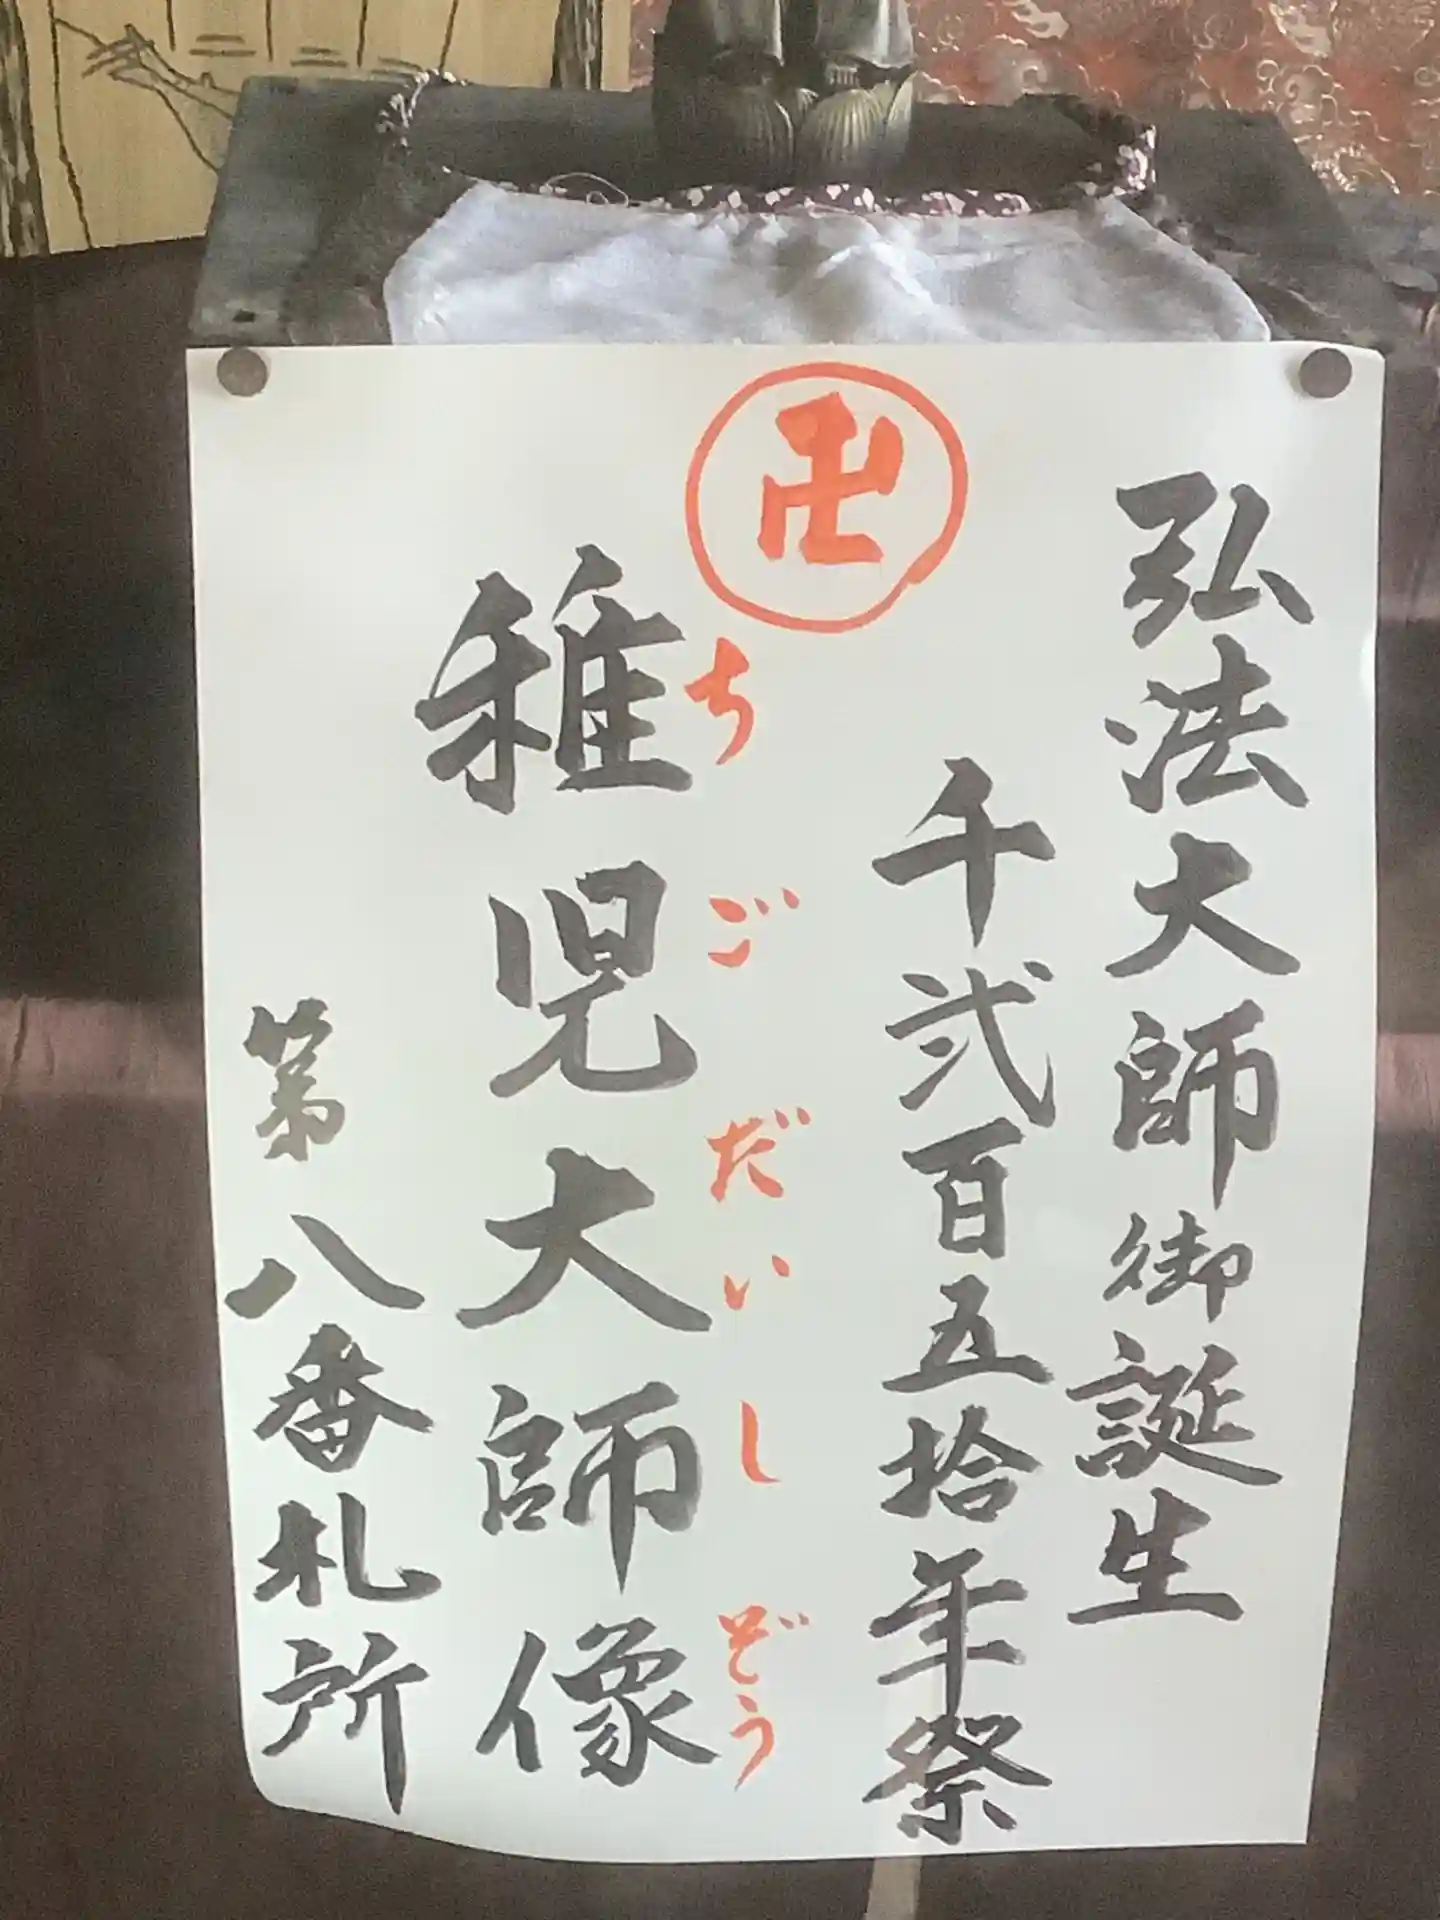 弘法大師御誕生
千弐百五拾年祭
卍
ちごだいしぞう
稚児大師像
第八番札所